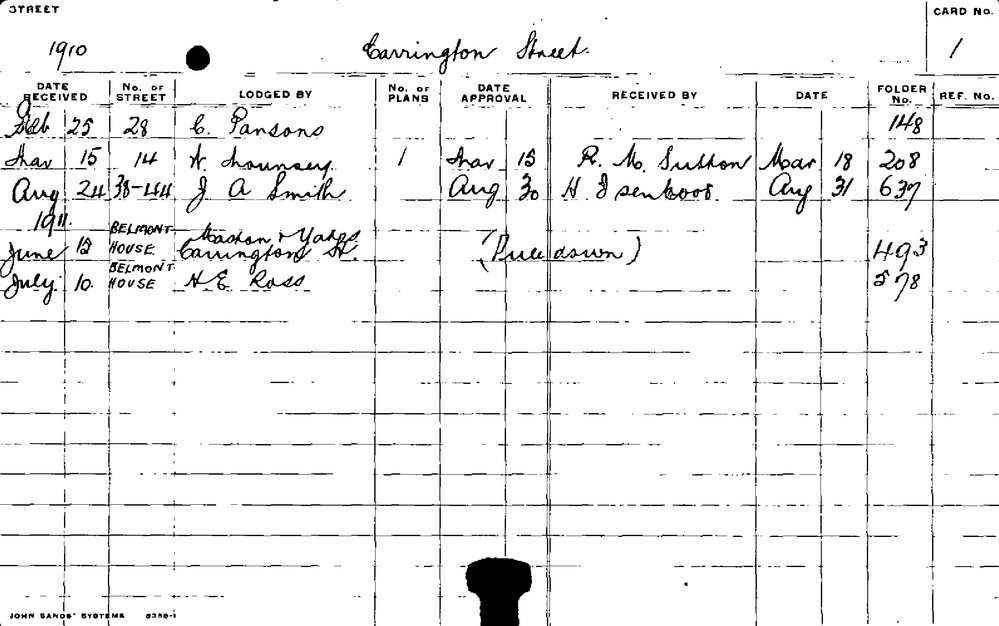 STREET
CARD No.
1910 Carrington Street. 1
DATE RECEIVED No. OF STREET LODGED BY No. OF PLANS DATE APPROVAL RECEIVED BY DATE FOLDER No. REF. No.
Feb 25 28 C. Parsons 148
Mar 15 14 H. Mounsey 1 Mar 15 R. M. Sutton Mar 18 208
Aug 24 38-44 J A Smith Aug 30 H Aug 31 637
1911.
BELMONT & Yates
June 15 HOUSE Carrington St. (Pull down) 493
BELMONT
July 10 HOUSE H E Ross 578
JOHN SANDS' SYSTEMS